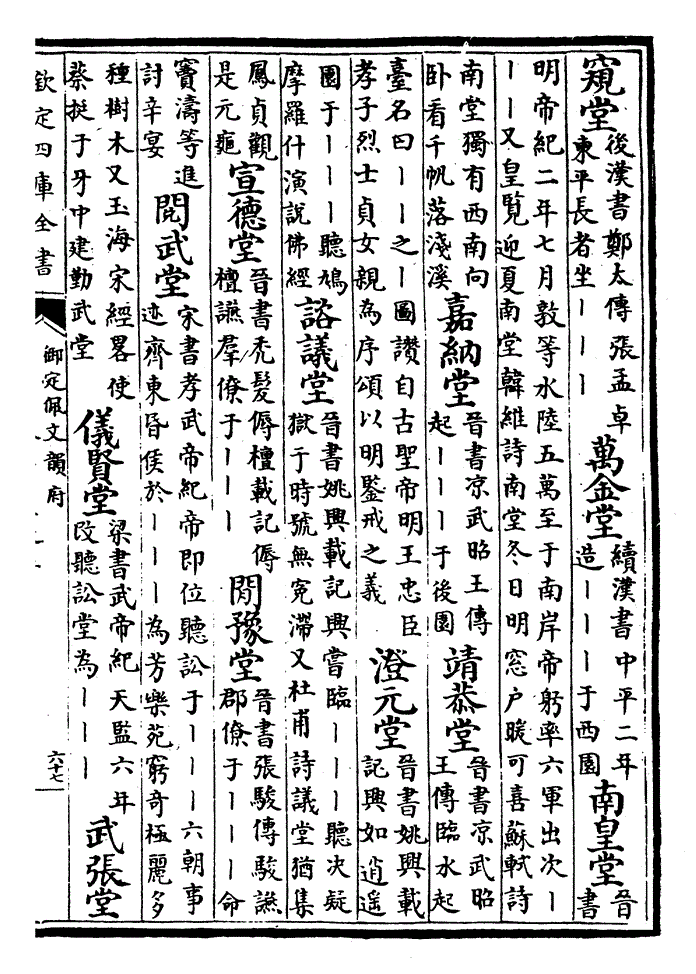 窺堂
後漢書鄭太傳張孟卓
東平長者坐丨丨丨
萬金堂
續漢書中平二年
造丨丨丨于西園
南皇堂
晉
書
明帝紀二年七月敦等水陸五萬至于南岸帝躬率六軍出次丨
丨丨又皇覽迎夏南堂韓維詩南堂冬日明窓户暖可喜蘇軾詩
南堂獨有西南向
卧看千帆落淺溪
嘉納堂
晉書凉武昭王傳
起丨丨丨于後園
靖恭堂
晉書凉武昭
王傳臨水起
臺名曰丨丨之丨圖讃自古聖帝明王忠臣
孝子烈士貞女親為序頌以明鑒戒之義
澄元堂
晉書姚興載
記興如逍遥
園于丨丨丨聽鳩
摩羅什演說佛經
諮議堂
晉書姚興載記興嘗臨丨丨丨聽决疑
獄于時號無寃滯又杜甫詩議堂猶集
鳳貞觀
是元龜
宣德堂
晉書秃髮傉檀載記傉
檀讌羣僚于丨丨丨
閒豫堂
晉書張駿傳駿讌
郡僚于丨丨丨命
竇濤等進
討辛宴
閱武堂
宋書孝武帝紀帝即位聽訟于丨丨丨六朝事
迹齊東昏侯於丨丨丨為芳樂苑窮奇極麗多
種樹木又玉海宋經畧使
蔡挺于牙中建勤武堂
儀賢堂
梁書武帝紀天監六年
改聽訟堂為丨丨丨
武張堂
欽定四庫全書
御定佩文韻府
六十七